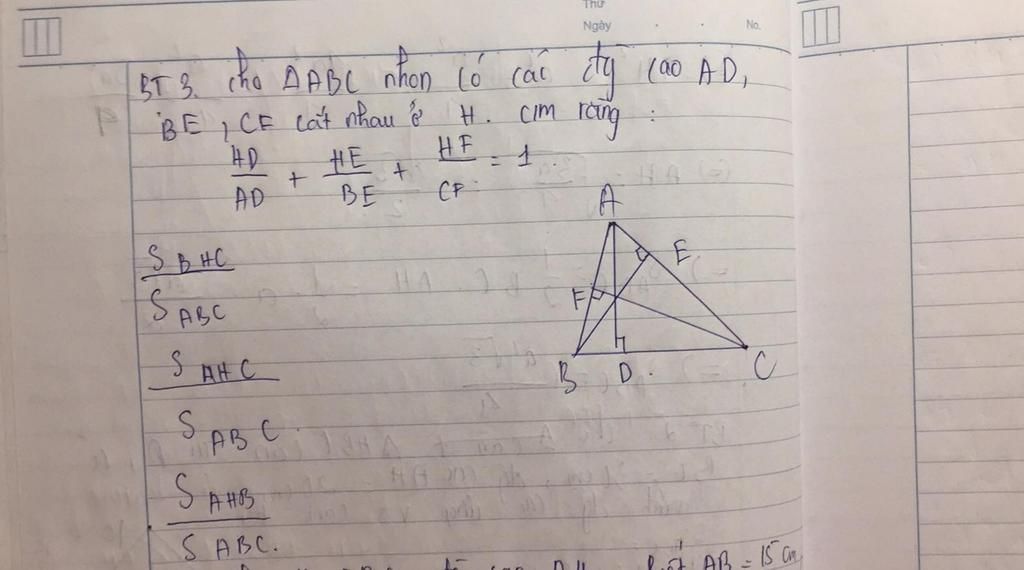 Thứ
Ngày . . No.
BT 3. cho ΔABC nhọn có các đg cao AD,
BE, CF cắt nhau ở H. CM rằng :
HD/AD + HE/BE + HF/CF = 1
S BHC
S ABC
S AHC
S ABC.
S AHB
S ABC.
A
E
F
B
D.
C
AB = 15 cm